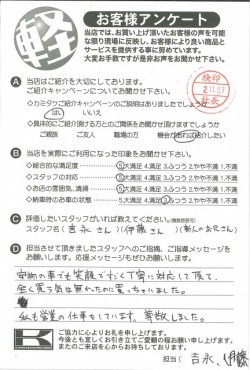 軽
お客様アンケート
当店では、お買い上げ頂いたお客様の声を可能
な限り現場に反映し、お客様により良い商品と
サービスを提供する事に努めています。
大変お手数ですが是非お声をお聞かせ下さい。
A 当店はご紹介を大切にしております。
ご紹介キャンペーンについてお聞かせ下さい。
・カミタウご紹介キャンペーンのご説明はありましたでしょうか
はい いいえ
・具体的にご紹介頂ける方とのご関係をお聞かせ頂けますでしょうか
ご親戚 ご友人 職場の方 機会があれば紹介したい
検印
21.11.07
店長
B 当店を実際にご利用になった印象をお聞かせ下さい。
・総合的な満足度 5.大満足 4.満足 3.ふつう 2.やや不満 1.不満
・スタッフの対応 5.大満足 4.満足 3.ふつう 2.やや不満 1.不満
・お店の雰囲気、清掃 5.大満足 4.満足 3.ふつう 2.やや不満 1.不満
・納車時のお車の状態 5.大満足 4.満足 3.ふつう 2.やや不満 1.不満
C 評価したいスタッフがいれば教えてください。(複数回答可)
スタッフ名 ( 吉永さん ) ( 伊藤さん ) ( 新人のお兄さん )
D 担当させて頂きましたスタッフへのご指摘、ご指導メッセージを
お願いします。応援メッセージもぜひお願いします。
笑顔ですごく丁寧に対応して頂て、
全く買う気は無かったのに買っちゃいました。
私も営業の仕事をしています。尊敬しました。
K
ご協力に心よりお礼を申し上げます。
今後とも宜しくお引き立てご愛顧の程お願い申し上げます。
またのご来店を心からお待ちしております。
担当 ( 吉永、伊藤